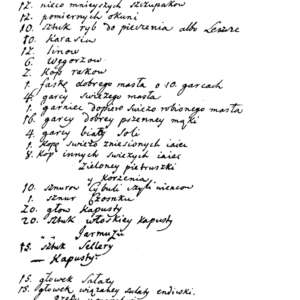 12. nieco mnieyszych szczupakow
12. pomiernych okuni
10. sztuk ryb do pieczenia albo Leszcze
80. karasiu
12. linow
6. Węgorzow
2. kop rakow
1. faskę dobrego masła o 10. garcach
4. garcy swiezego masła
1. garniec dopiero swiezo robionego masła
16. garcy dobrey pszenney mąki
4. garcy białey soli
1. kopę swiezo zniesionych iaiec
8. kop innych swiezych iaiec
Zieloney pietruszki
y korzenia
10. sznurow cybuli czyli wiencow
1. sznur Czosnku
20. głow Kapusty
20. sztuk włoskiey kapusty
" " Jarmużu
18. sztuk Sellery
— Kapusty
15. głowek Sałaty
15. głowek wiązaney sałaty endiwii.